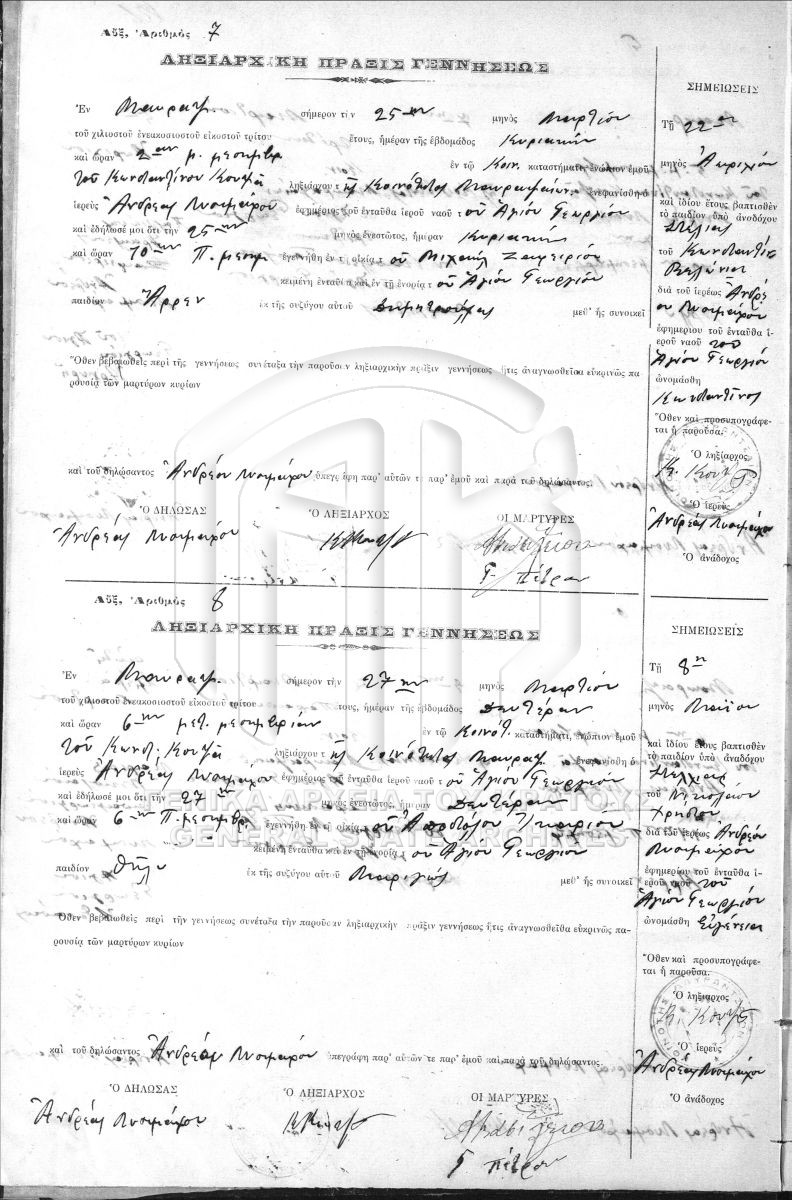 Αὔξ. Ἀριθμὸς 7
ΛΗΞΙΑΡΧΙΚΗ ΠΡΑΞΙΣ ΓΕΝΝΗΣΕΩΣ
Ἐν σήμερον τὴν 25ην μηνὸς Μαρτίου
τοῦ χιλιοστοῦ ἐνεακοσιοστοῦ εἰκοστοῦ τρίτου ἔτους, ἡμέραν τῆς ἑβδομάδος Κυριακὴν
καὶ ὥραν 2αν μ. μεσημβρ. ἐν τῷ Κοιν. καταστήματι, ἐνώπιον ἐμοῦ
τοῦ Κωνσταντίνου ληξιάρχου τῆς Κοινότητος ἐνεφανίσθη ὁ
ἱερεὺς Ἀνδρέας Λυσιμάχου ἐφημέριος τοῦ ἐνταῦθα ἱεροῦ ναοῦ τοῦ Ἁγίου Γεωργίου
καὶ ἐδήλωσέ μοι ὅτι τὴν 25ην μηνὸς ἐνεστῶτος, ἡμέραν Κυριακὴν
καὶ ὥραν 10ην Π. μεσημ. ἐγεννήθη ἐν τῇ οἰκίᾳ τοῦ Μιχαὴλ
κειμένῃ ἐνταῦθα καὶ ἐν τῇ ἐνορίᾳ τοῦ Ἁγίου Γεωργίου
παιδίον Ἄρρεν ἐκ τῆς συζύγου αὐτοῦ Δημητρούλας μεθ' ἧς συνοικεῖ
Ὅθεν βεβαιωθεὶς περὶ τῆς γεννήσεως συνέταξα τὴν παροῦσαν ληξιαρχικὴν πρᾶξιν γεννήσεως ἥτις ἀναγνωσθεῖσα εὐκρινῶς πα-
ρουσίᾳ τῶν μαρτύρων κυρίων
καὶ τοῦ δηλώσαντος Ἀνδρέου Λυσιμάχου ὑπεγράφη παρ' αὐτῶν τε παρ' ἐμοῦ καὶ παρὰ τοῦ δηλώσαντος.
Ὁ ΔΗΛΩΣΑΣ Ὁ ΛΗΞΙΑΡΧΟΣ ΟΙ ΜΑΡΤΥΡΕΣ
Ἀνδρέας Λυσιμάχου
Γ. Πέτρου
ΣΗΜΕΙΩΣΕΙΣ
Τῇ 22αν
μηνὸς Ἀπριλίου
καὶ ἰδίου ἔτους βαπτισθὲν
τὸ παιδίον ὑπὸ ἀναδόχου
τοῦ Κωνσταντίν
διὰ τοῦ ἱερέως Ἀνδρέ
ου Λυσιμάχου
ἐφημερίου τοῦ ἐνταῦθα ἱ-
εροῦ ναοῦ τοῦ
Ἁγίου Γεωργίου
ὠνομάσθη
Κωνσταντῖνος
Ὅθεν καὶ προσυπογράφε-
ται ἡ παροῦσα.
Ὁ ληξίαρχος
Ὁ ἱερεὺς
Ἀνδρέας Λυσιμάχου
Ὁ ἀνάδοχος
Αὔξ. Ἀριθμὸς 8
ΛΗΞΙΑΡΧΙΚΗ ΠΡΑΞΙΣ ΓΕΝΝΗΣΕΩΣ
Ἐν σήμερον τὴν 27ην μηνὸς Μαρτίου
τοῦ χιλιοστοῦ ἐνεακοσιοστοῦ εἰκοστοῦ τρίτου ἔτους, ἡμέραν τῆς ἑβδομάδος Δευτέραν
καὶ ὥραν 6ην μετ. μεσημβρίαν ἐν τῷ Κοινότ. καταστήματι, ἐνώπιον ἐμοῦ
τοῦ Κωνστ. ληξιάρχου τῆς Κοινότητος ἐνεφανίσθη ὁ
ἱερεὺς Ἀνδρέας Λυσιμάχου ἐφημέριος τοῦ ἐνταῦθα ἱεροῦ ναοῦ τοῦ Ἁγίου Γεωργίου
καὶ ἐδήλωσέ μοι ὅτι τὴν 27ην μηνὸς ἐνεστῶτος, ἡμέραν Δευτέραν
καὶ ὥραν 6ην Π. μεσημβρ. ἐγεννήθη ἐν τῇ οἰκίᾳ τοῦ Ἀποστόλου
κειμένῃ ἐνταῦθα καὶ ἐν τῇ ἐνορίᾳ τοῦ Ἁγίου Γεωργίου
παιδίον Θῆλυ ἐκ τῆς συζύγου αὐτοῦ μεθ' ἧς συνοικεῖ
Ὅθεν βεβαιωθεὶς περὶ τὴν γεννήσεως συνέταξα τὴν παροῦσαν ληξιαρχικὴν πρᾶξιν γεννήσεως ἥτις ἀναγνωσθεῖσα εὐκρινῶς πα-
ρουσίᾳ τῶν μαρτύρων κυρίων
καὶ τοῦ δηλώσαντος Ἀνδρέου Λυσιμάχου ὑπεγράφη παρ' αὐτῶν τε παρ' ἐμοῦ καὶ παρὰ τοῦ δηλώσαντος.
Ὁ ΔΗΛΩΣΑΣ Ὁ ΛΗΞΙΑΡΧΟΣ ΟΙ ΜΑΡΤΥΡΕΣ
Ἀνδρέας Λυσιμάχου
Γ Πέτρου
ΣΗΜΕΙΩΣΕΙΣ
Τῇ 8η
μηνὸς Μαΐου
καὶ ἰδίου ἔτους βαπτισθὲν
τὸ παιδίον ὑπὸ ἀναδόχου
τοῦ Νικολάου
Χρήστου
διὰ τοῦ ἱερέως Ἀνδρέου
Λυσιμάχου
ἐφημερίου τοῦ ἐνταῦθα ἱ-
εροῦ ναοῦ τοῦ
Ἁγίου Γεωργίου
ὠνομάσθη Εὐγένεια
Ὅθεν καὶ προσυπογράφε-
ται ἡ παροῦσα.
Ὁ ληξίαρχος
Ὁ ἱερεὺς
Ἀνδρέας Λυσιμάχου
Ὁ ἀνάδοχος
ΓΕΝΙΚΑ ΑΡΧΕΙΑ ΤΟΥ ΚΡΑΤΟΥΣ
GENERAL STATE ARCHIVES